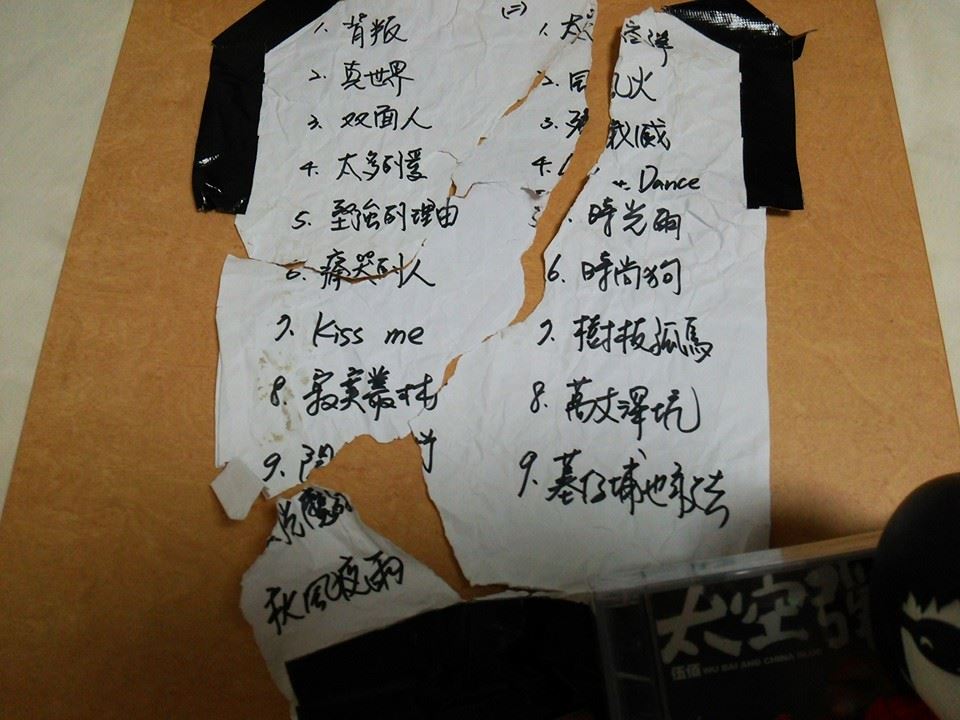 1. 背叛
2. 真世界
3. 双面人
4. 太多的愛
5. 堅強的理由
6. 痛哭的人
7. Kiss me
8. 寂寞叢林
9.
秋風夜雨
(二)
1. 太空彈
2. 火
3. 威
4. Dance
時光雨
6. 時尚狗
7. 樹枝孤鳥
8. 萬丈深坑
9. 墓仔埔也敢去
太空彈
伍佰 WU BAI AND CHINA BLUE